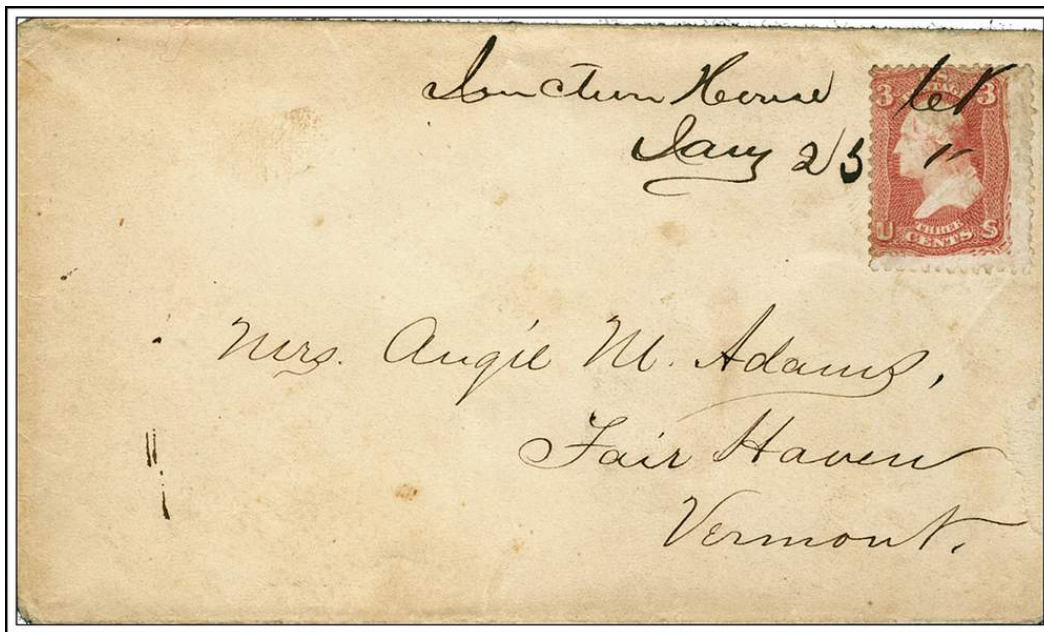 Junction House
Jany 25
3 POSTAGE 3
U THREE S
CENTS
Mrs. Angie M. Adams,
Fair Haven
Vermont.